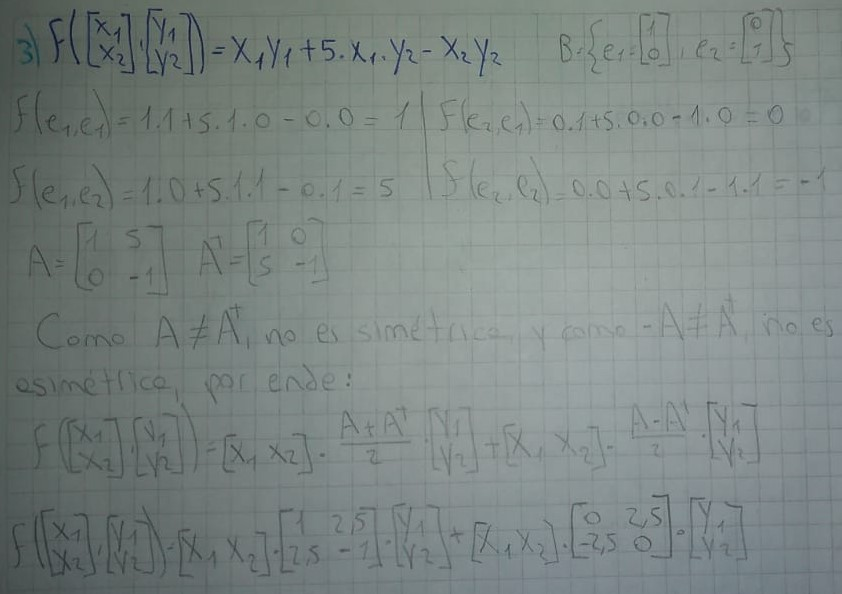 3) f([x₁ x₂],[y₁ y₂]) = x₁y₁+5.x₁.y₂-x₂y₂ B={e₁=[1 0], e₂=[0 1]}
f(e₁,e₁)=1.1+5.1.0-0.0=1 | f(e₂,e₁)=0.1+5.0.0-1.0=0
f(e₁,e₂)=1.0+5.1.1-0.1=5 | f(e₂,e₂)=0.0+5.0.1-1.1=-1
A=[1 5; 0 -1] Aᵗ=[1 0; 5 -1]
Como A≠Aᵗ, no es simétrica, y como -A≠Aᵗ, no es
asimétrica, por ende:
f([x₁ x₂],[y₁ y₂])=[x₁ x₂].(A+Aᵗ)/2.[y₁ y₂]+[x₁ x₂].(A-Aᵗ)/2.[y₁ y₂]
f([x₁ x₂],[y₁ y₂])=[x₁ x₂].[1 2,5; 2,5 -1].[y₁ y₂]+[x₁ x₂].[0 2,5; -2,5 0].[y₁ y₂]